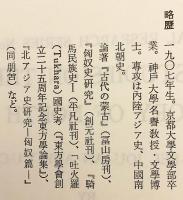 略歴　一九〇七年生。京都大學文學部卒
業。神戸大學名譽教授・文學博
士。專攻は内陸アジア史、中國南
北朝史。
論著『古代の蒙古』（冨山房刊）、
『匈奴史研究』（創元社刊）、『騎
馬民族史―』（平凡社刊）、「吐火羅
(Tukhara)國史考」（『東方學會創
立二十五周年記念東方學論集』）、
『北アジア史研究―匈奴篇―』
（同朋舎）など。